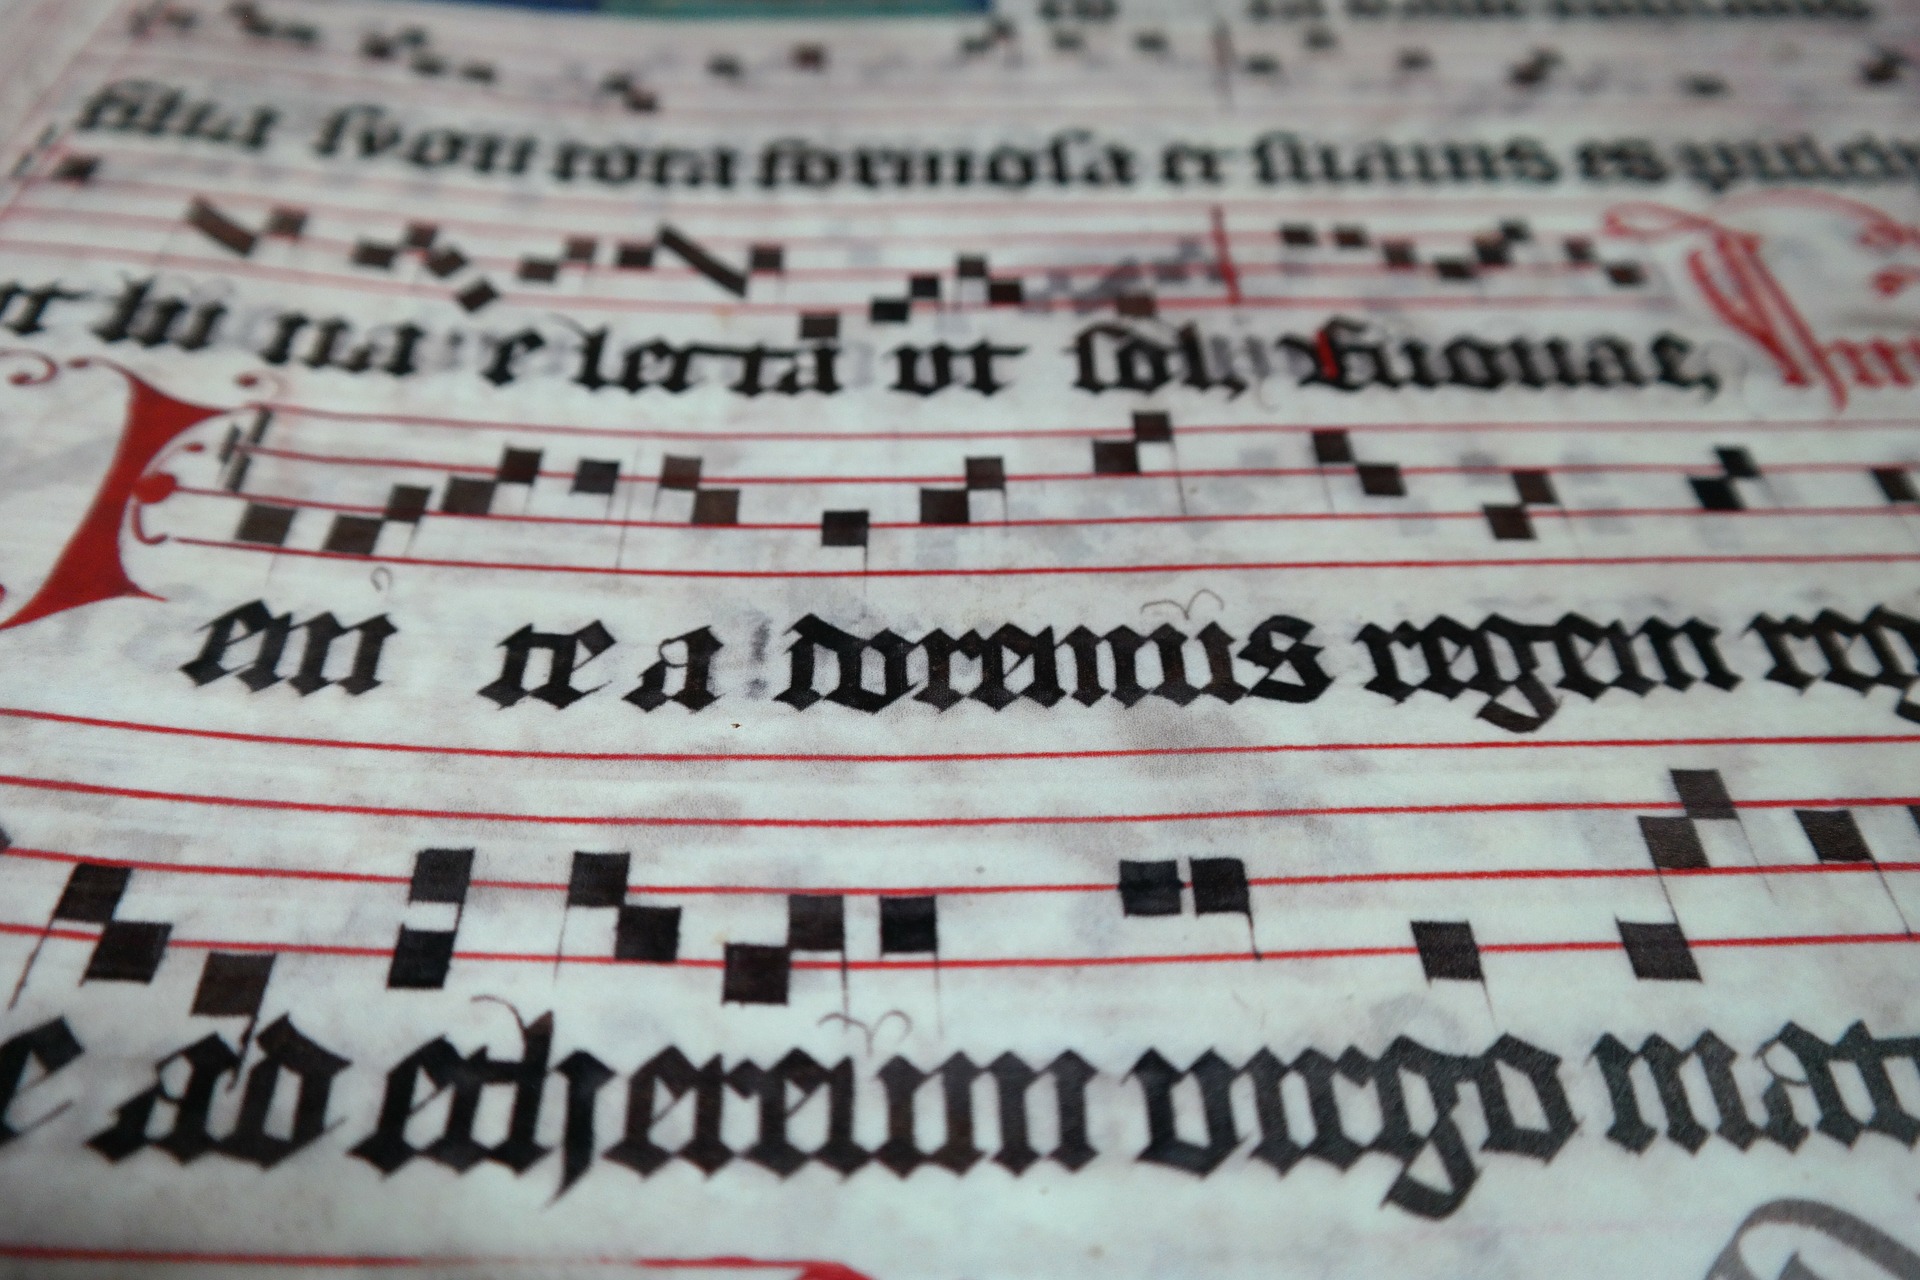 filia syon tota formosa et suauis es
ut luna electa ut sol, Euouae,
Venite adoremus regem reg
ad ethereum virgo mat